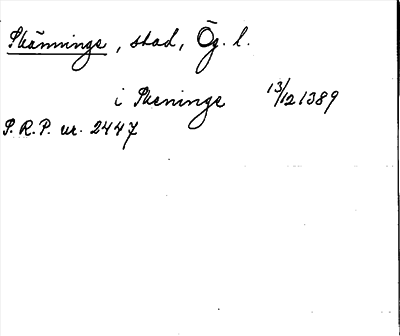 Skänninge, stad, Ög. l.
i Skeninge 13/12 1389
S.R.P. nr. 2447